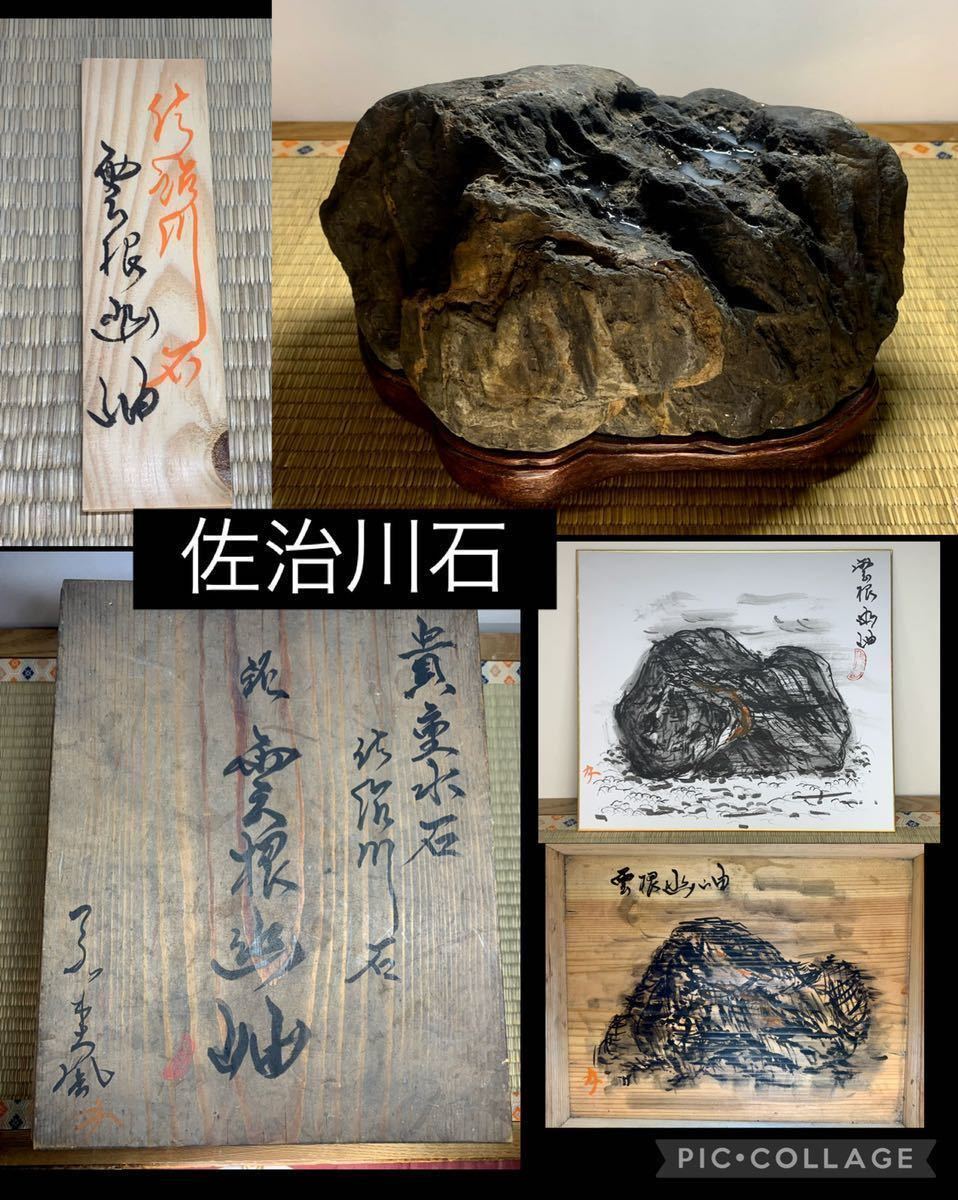 佐治川石
雲根幽岫
佐治川石
貴重水石
佐治川石
銘 雲根幽岫
雲根幽岫
雲根幽岫
PIC•COLLAGE